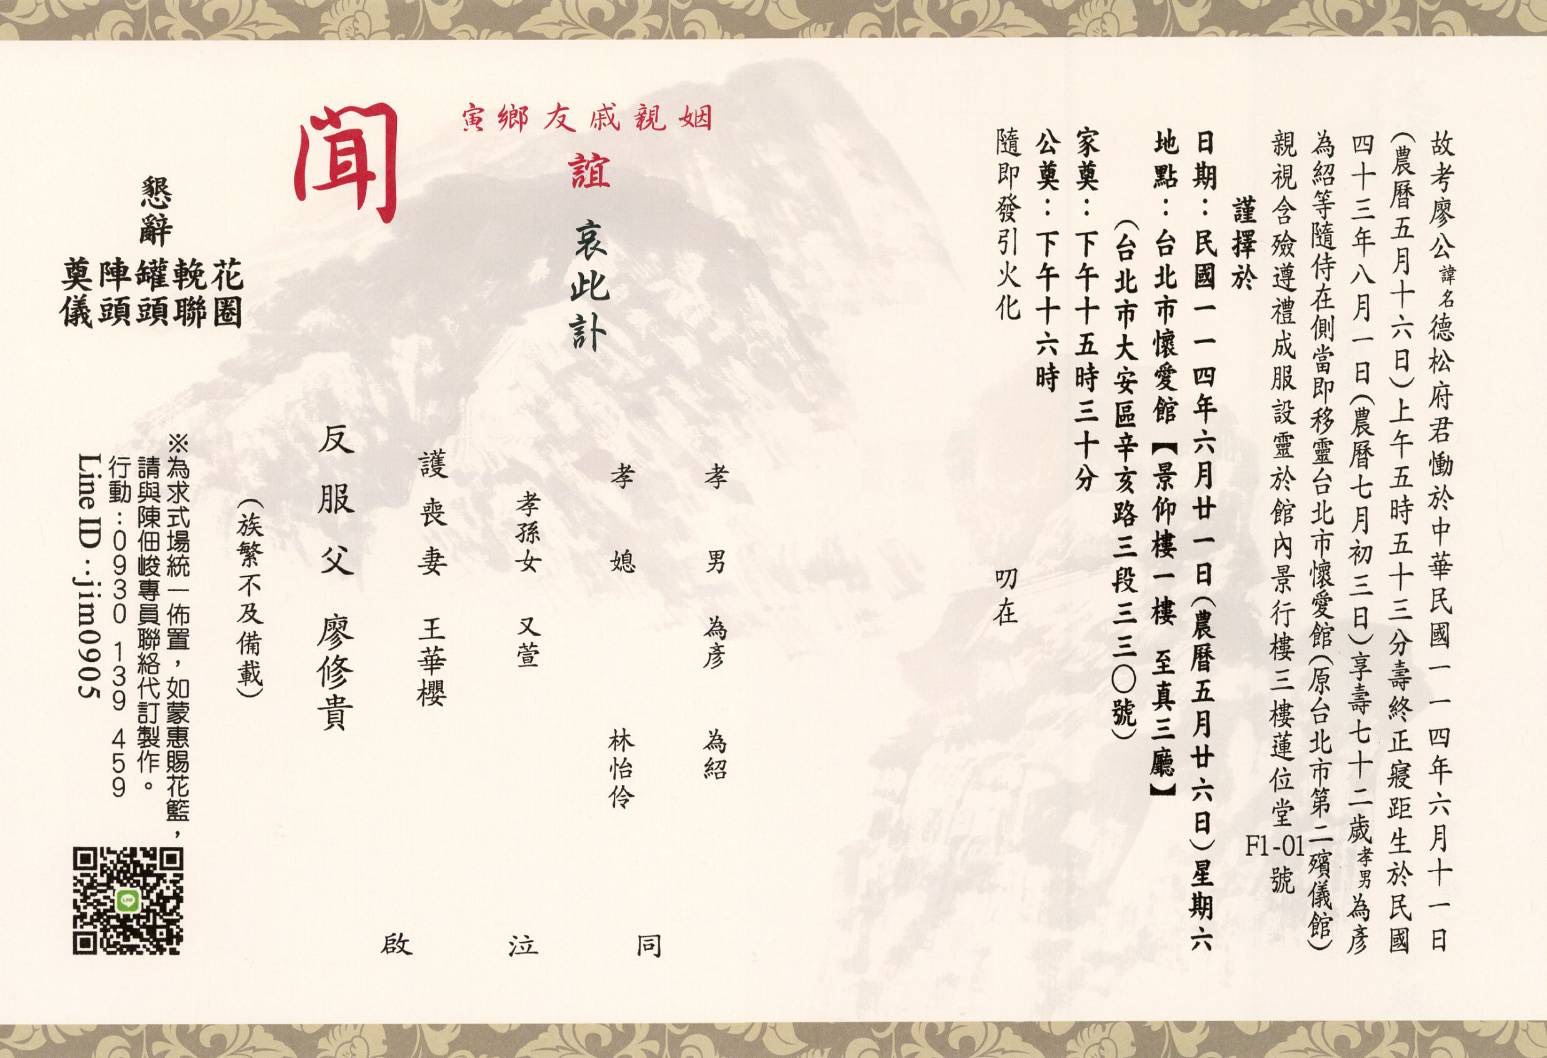 故考廖公諱名德松府君慟於中華民國一一四年六月十一日
(農曆五月十六日)上午五時五十三分壽終正寢距生於民國
四十三年八月一日(農曆七月初三日)享壽七十二歲孝男為彥
為紹等隨侍在側當即移靈台北市懷愛館(原台北市第二殯儀館)
親視含殮遵禮成服設靈於館內景行樓三樓蓮位堂F1-01號
謹擇於
日期：民國一一四年六月廿一日(農曆五月廿六日)星期六
地點：台北市懷愛館【景仰樓一樓 至真三廳】
(台北市大安區辛亥路三段三三〇號)
家奠：下午十五時三十分
公奠：下午十六時
隨即發引火化
叨在
姻親戚友鄉寅
誼
哀此訃
聞
孝男 為彥 為紹
孝媳 林怡伶
孝孫女 又萱
護喪妻 王華櫻
反服父 廖修貴
同泣啟
(族繁不及備載)
懇辭
花圈
輓聯
罐頭
陣頭
奠儀
※為求式場統一佈置，如蒙惠賜花籃，
請與陳佃峻專員聯絡代訂製作。
行動：0930 139 459
Line ID：jim0905